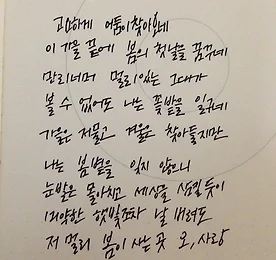 고요하게 어둠이 찾아오네
이 가을 끝에 봄의 첫날을 꿈꾸네
만리너머 멀리있는 그대가
볼 수 없어도 나는 꽃밭을 일구네
가을은 저물고 겨울은 찾아들지만
나는 봄볕을 잊지 않으니
눈발은 몰아치고 세상을 삼킬듯이
미약한 햇빛조차 날 버려도
저 멀리 봄이 사는 곳 오, 사랑